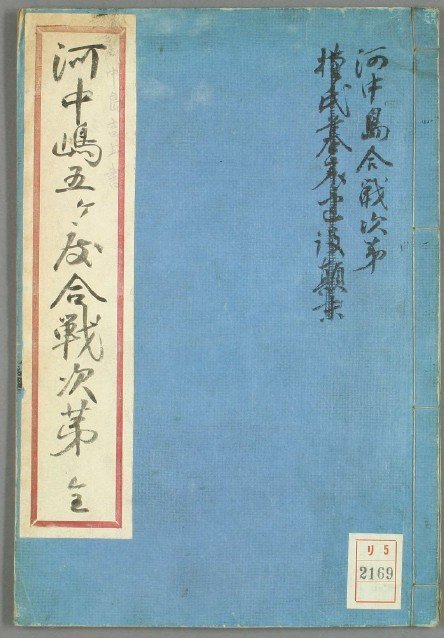 河中島合戦次第
河中嶋五ケ度合戦次第 全
リ 5
2169